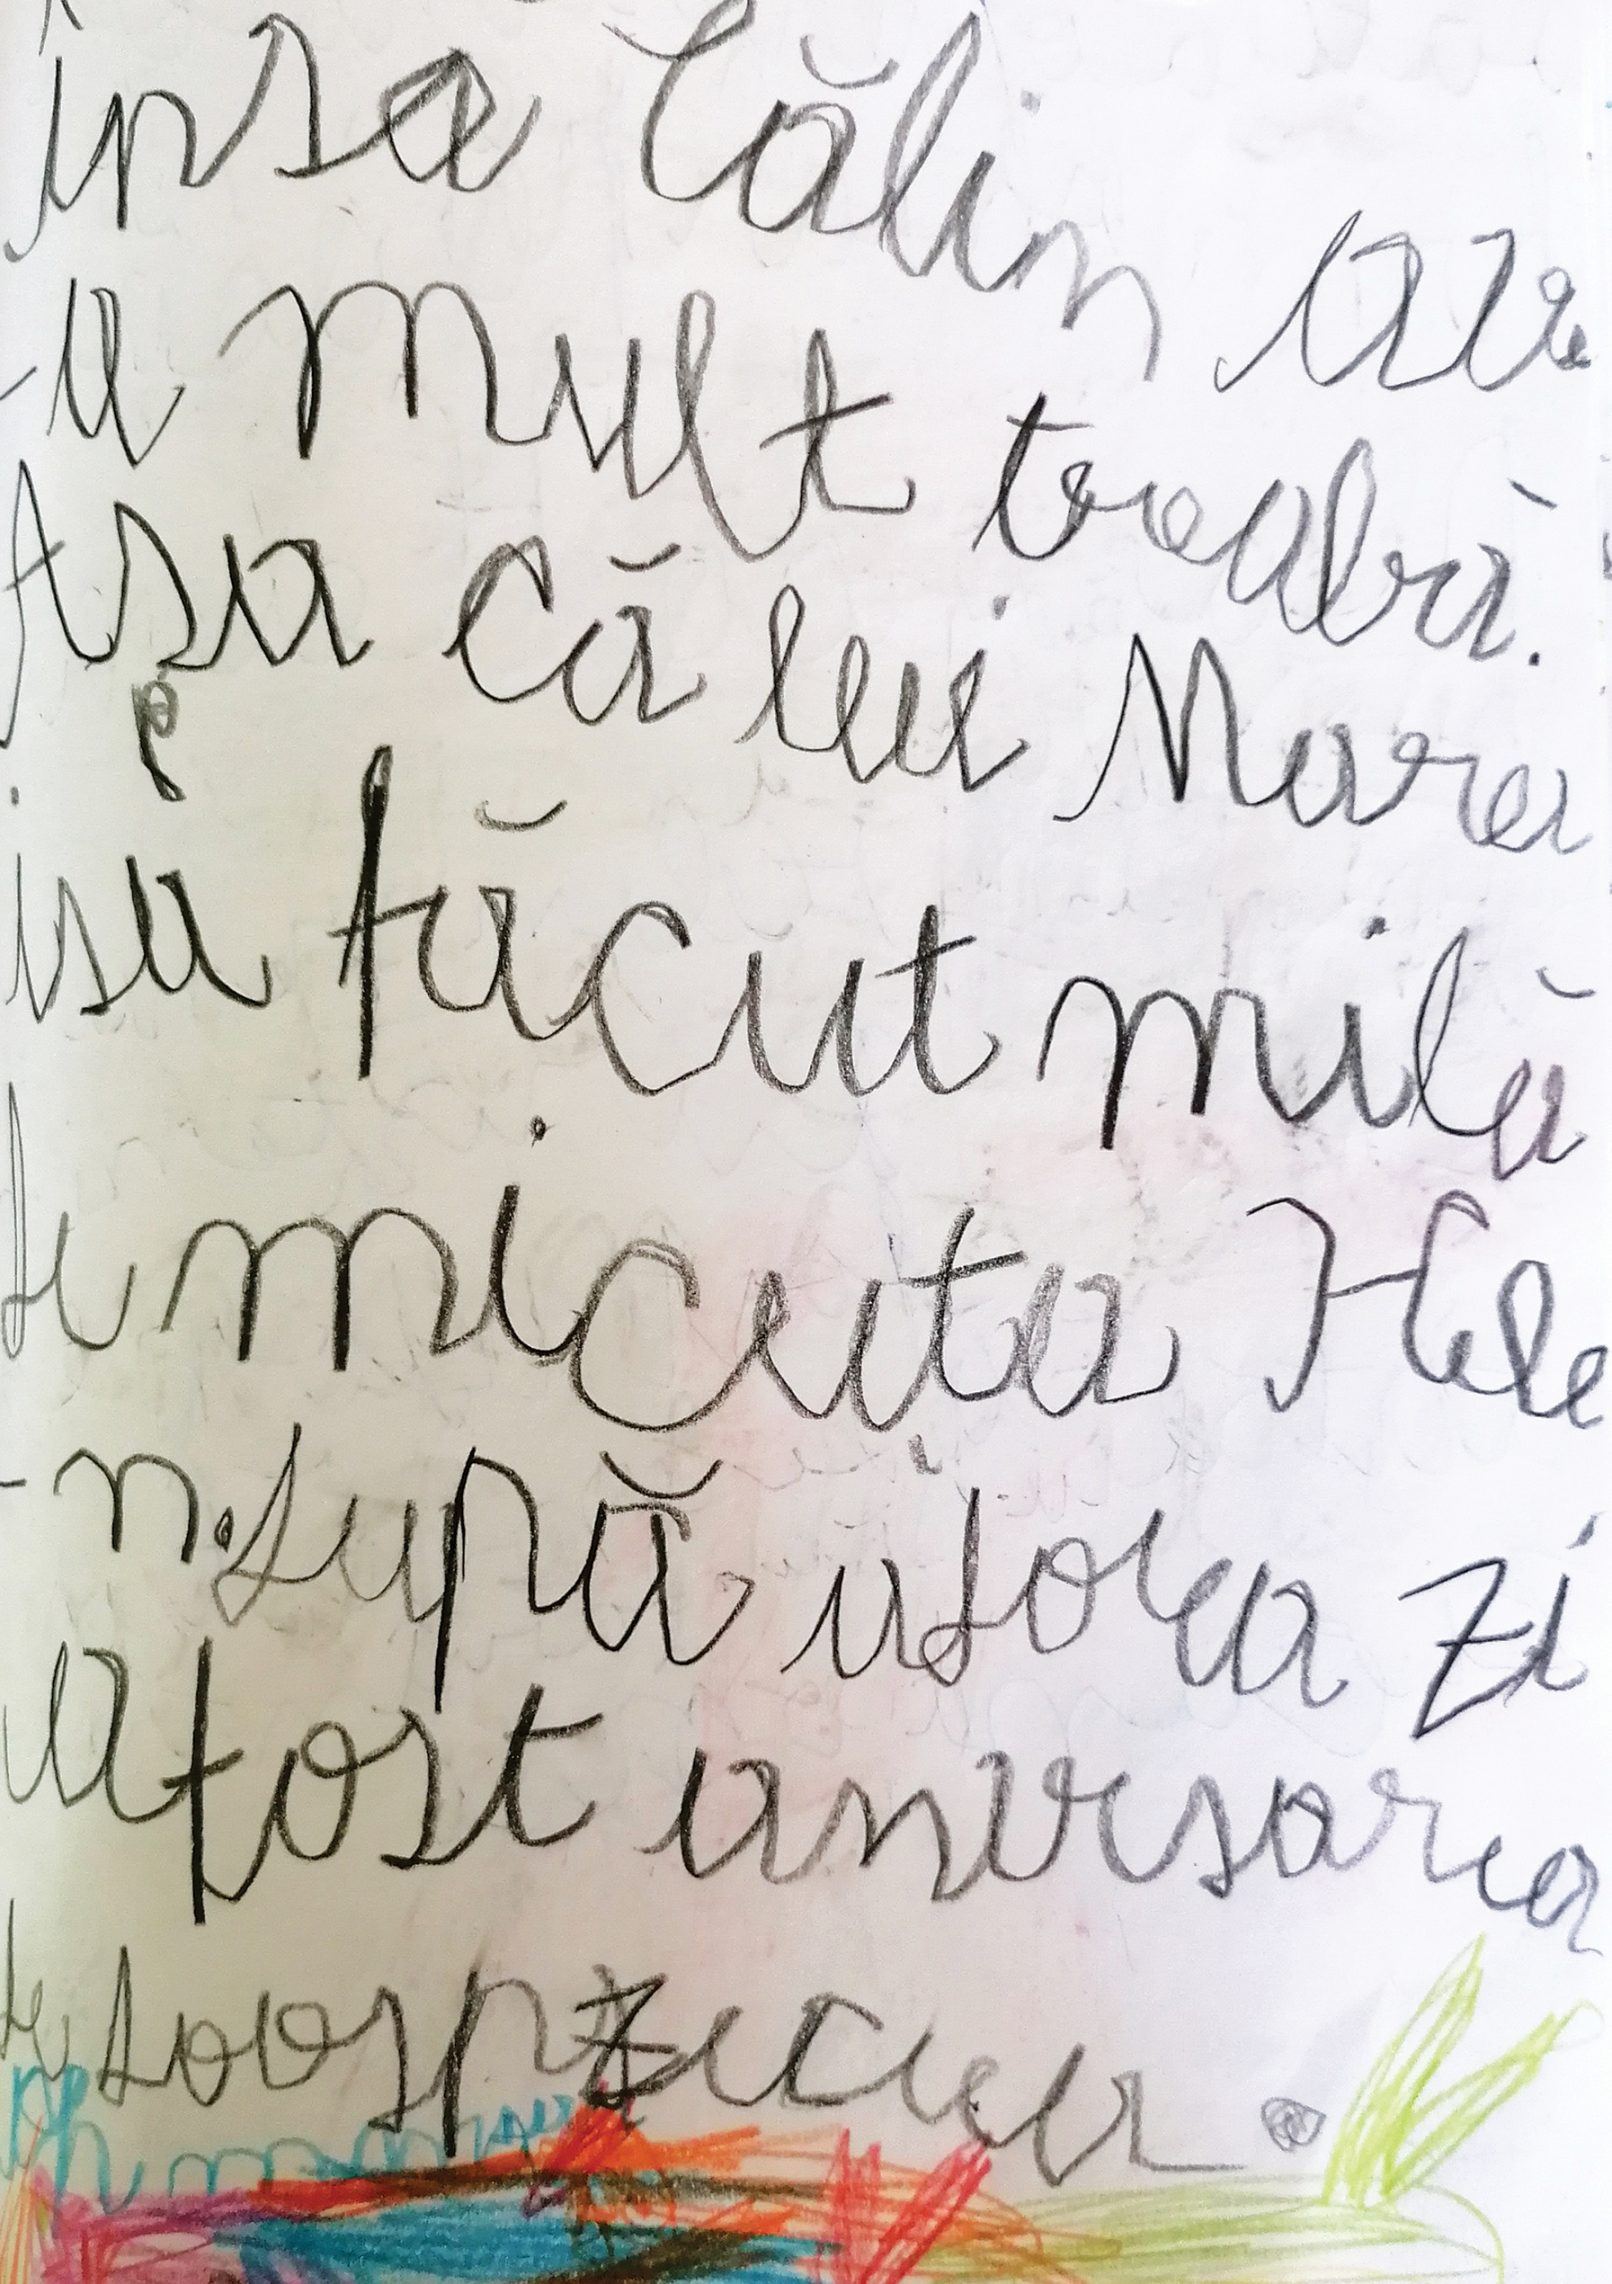 însa Călin ave
-a mult treabă.
Așa că lui Mara
isa făcut milă
de micuța Hele
-n. după aseea zi
a fost anversarea
de dooosprzecea.